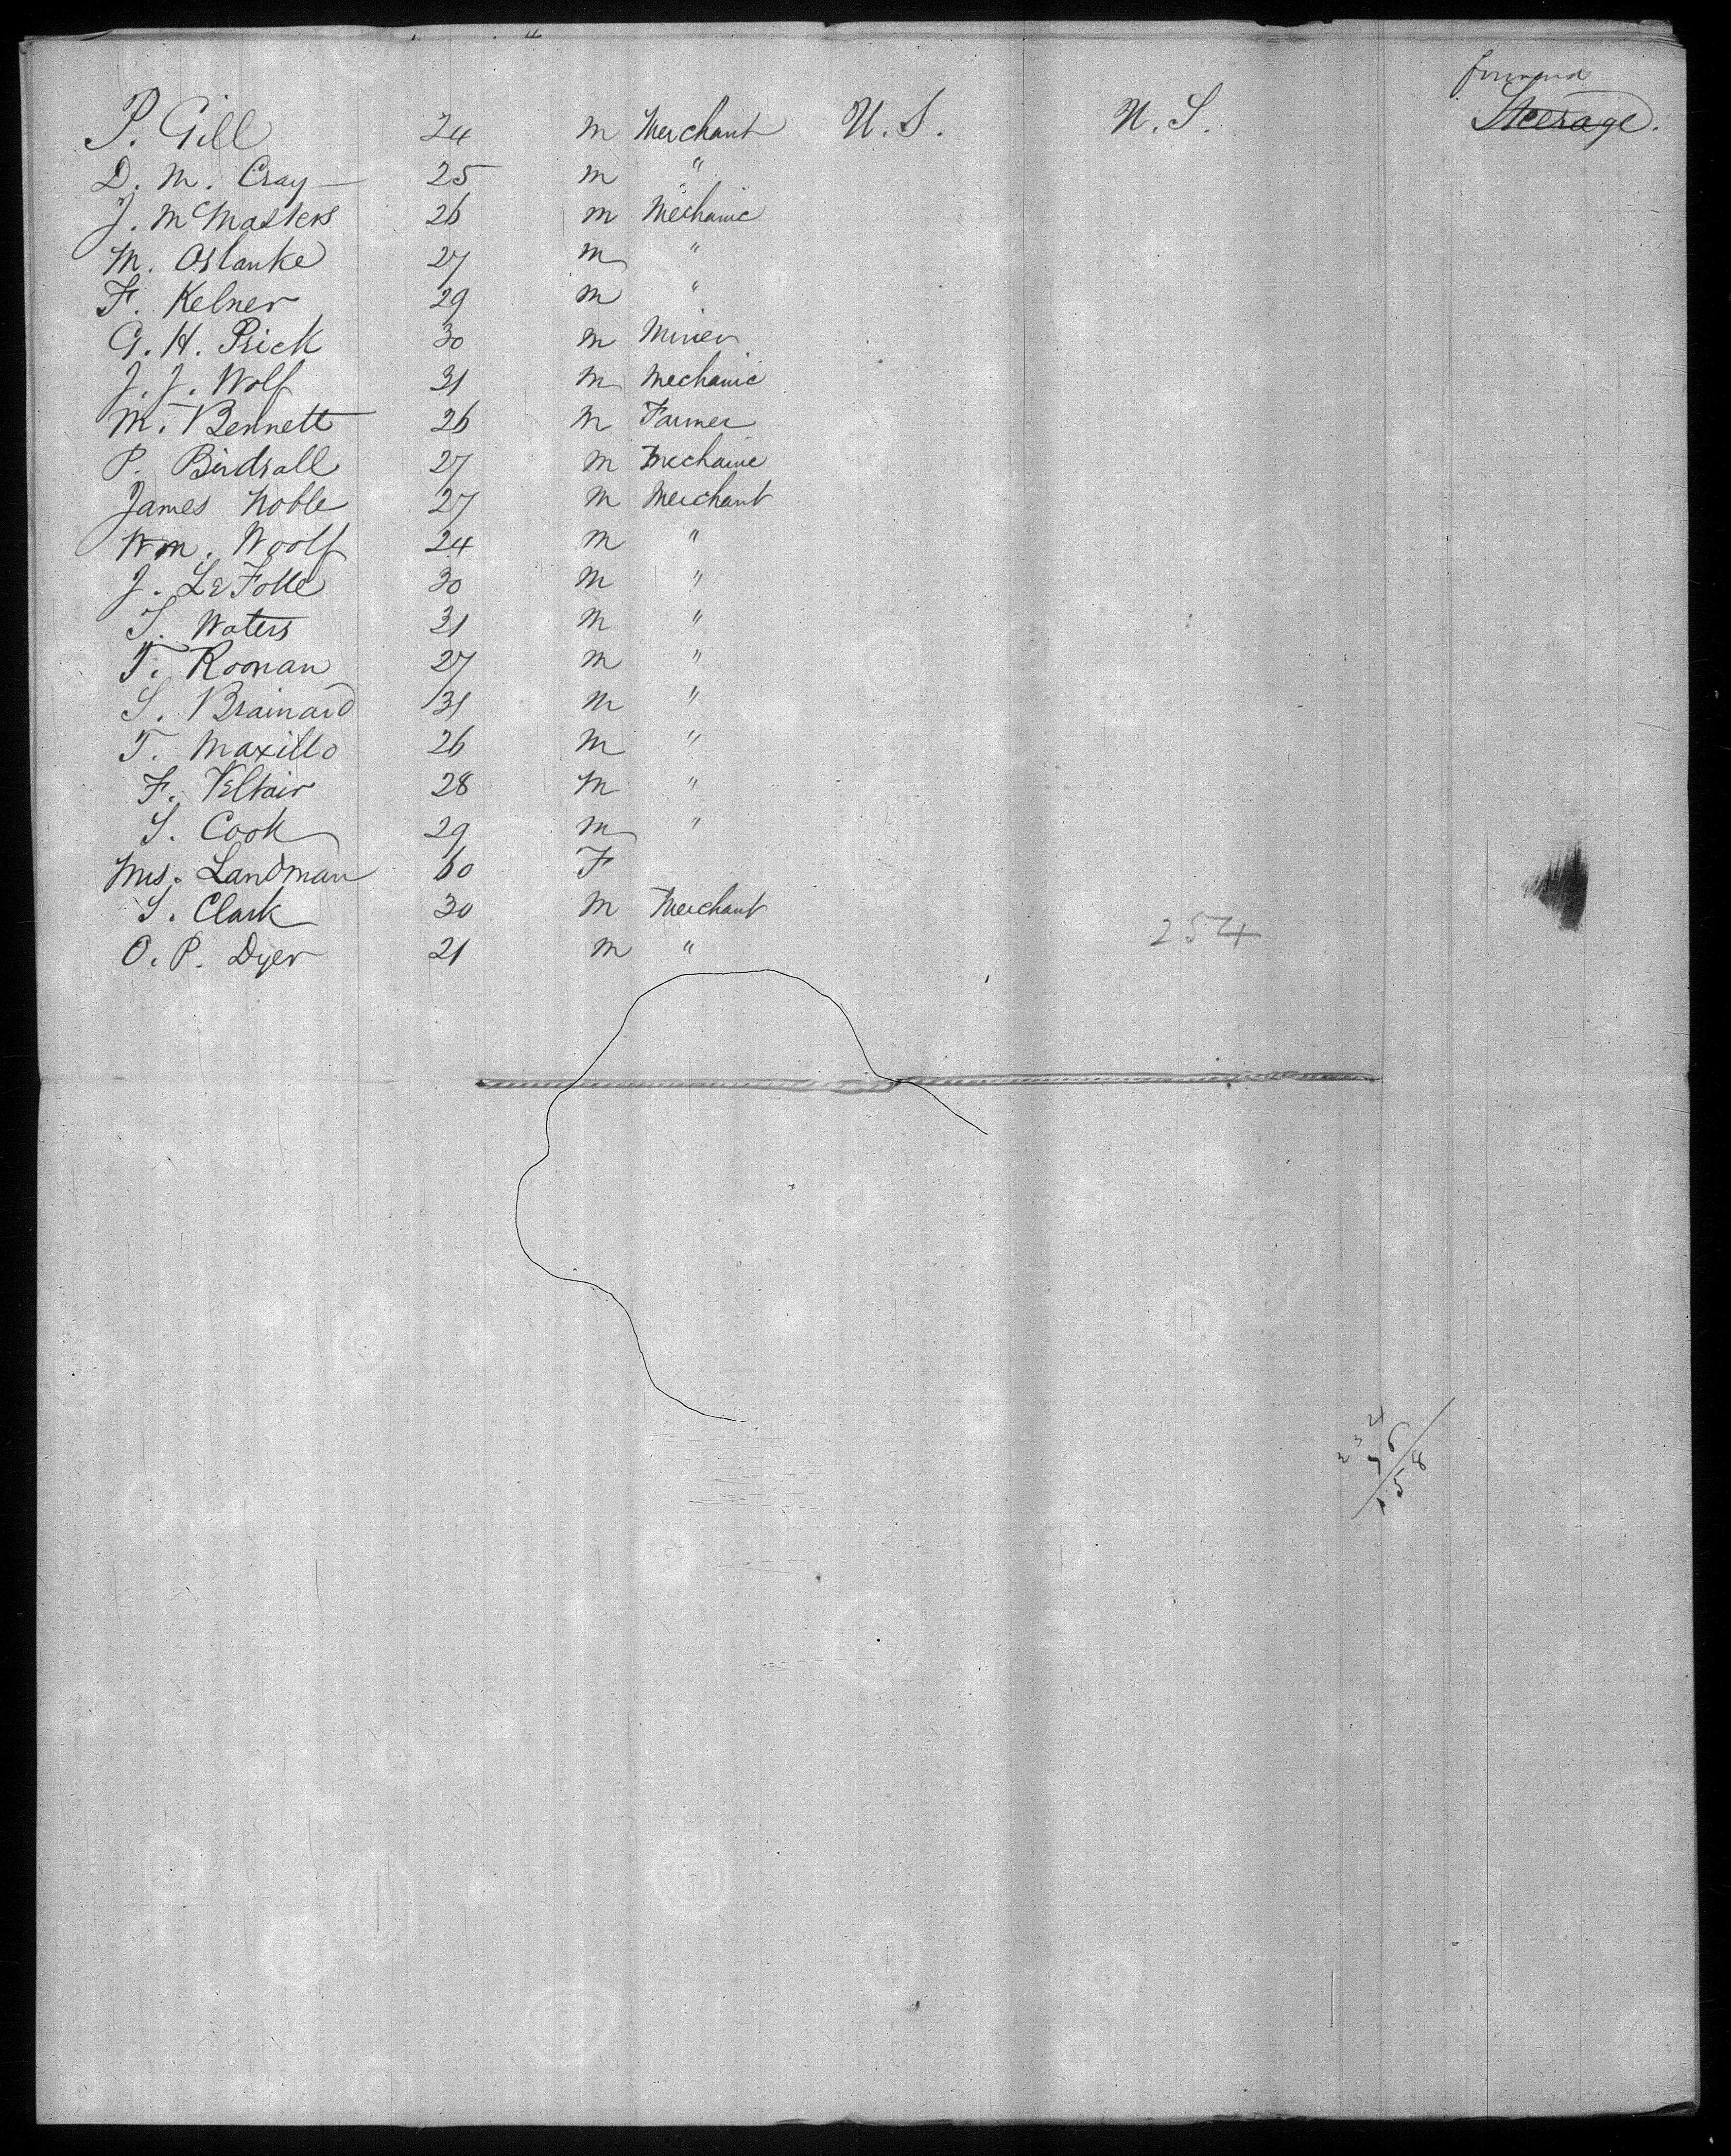 forward
P. Gill 24 m Merchant U.S. U.S. Steerage.
D. M. Cray 25 m "
J. McMasters 26 m Mechanic
M. Oslanke 27 m "
F. Kelner 29 m "
G. H. Prick 30 m Miner
J. J. Wolf 31 m Mechanic
M. Bennett 26 m Farmer
P. Birdsall 27 m Mechanic
James Noble 27 m Merchant
Wm. Woolf 24 m "
J. 30 m "
S. Waters 31 m "
T. Roonan 27 m "
S. Brainard 31 m "
T. Maxillo 26 m "
F. 28 m "
S. Cook 29 m "
Mrs. Landman 60 F
S. Clark 30 m Merchant
O. P. Dyer 21 m "
254
234
76
158